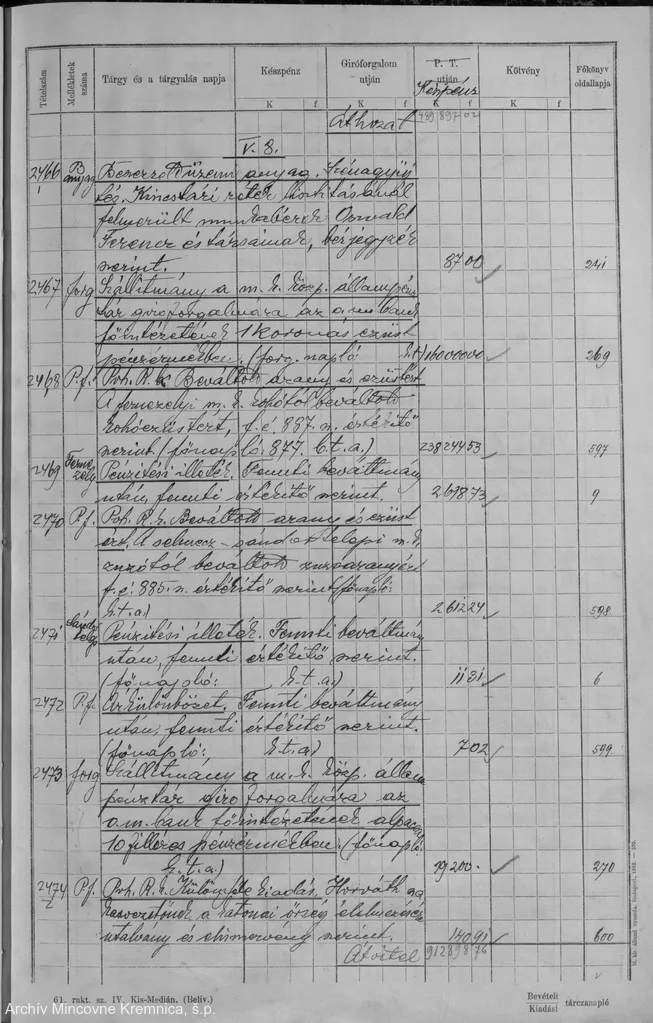 Tételszám
Mellékletek száma
Tárgy és a tárgyalás napja
Készpénz
Giróforgalom útján
P. T. útján
Készpénz
Kötvény
Főkönyv oldallapja
K f K f K f K f
Áthozat 489 897 02
V. 8.
2466 anyag
tés. Kincstári rétek
felmerült munkabérek Oswald
Ferencz és társainak, bérjegyzék
szerint. 8700 241
2467 forg Szállítmány a m. k. közp. állampénz
tár giroforgalmára az o. m. bank
főintézetének 1 koronás ezüst
pénzérmékben. (forg. napló: 16000000 269
2468 P.f. Poh. R. k. Beváltott arany és ezüstért
A fernezelyi m. k. kohótól beváltott
kohóezüstért, f. é. 887. n. értesítő
szerint (főnapló: 877. b. t. a.) 23824453 597
2469 Fernezely Pénzítési illeték. Fennti beváltmány
után, fennti értesítő szerint. 261873 9
2470 P.f. Poh. R. k. Beváltott arany és ezüst
ért. A selmecz-sandortelepi m. k.
zuzótól beváltott zuzaranyért
f. é. 885. n. értesítő szerint (főnapló:
k. t. a.) 261224 598
2471 Pénzítési illeték. Fennti beváltmány
után, fennti értesítő szerint.
(főnapló: k. t. a.) 1131 6
2472 P.f. Árkülönbözet. Fennti beváltmány
után, fennti értesítő szerint.
(főnapló: k. t. a.) 702 599
2473 forg Szállítmány a m. k. közp. állam
pénztár giro forgalmára az
o. m. bank főintézetének alpacca
10 filléres pénzérmékben. (főnapló:
k. t. a.) 79200. 270
2474 P.f. Poh. R. k. Különféle kiadás. Horváth
a katonai őrség
utalvány és elismervény szerint. 14091 600
Átvitel 912898 76
61. rakt. sz. IV. Kis-Medián. (Belív.)
Bevételi
Kiadási tárczanapló
Archív Mincovne Kremnica, š.p.